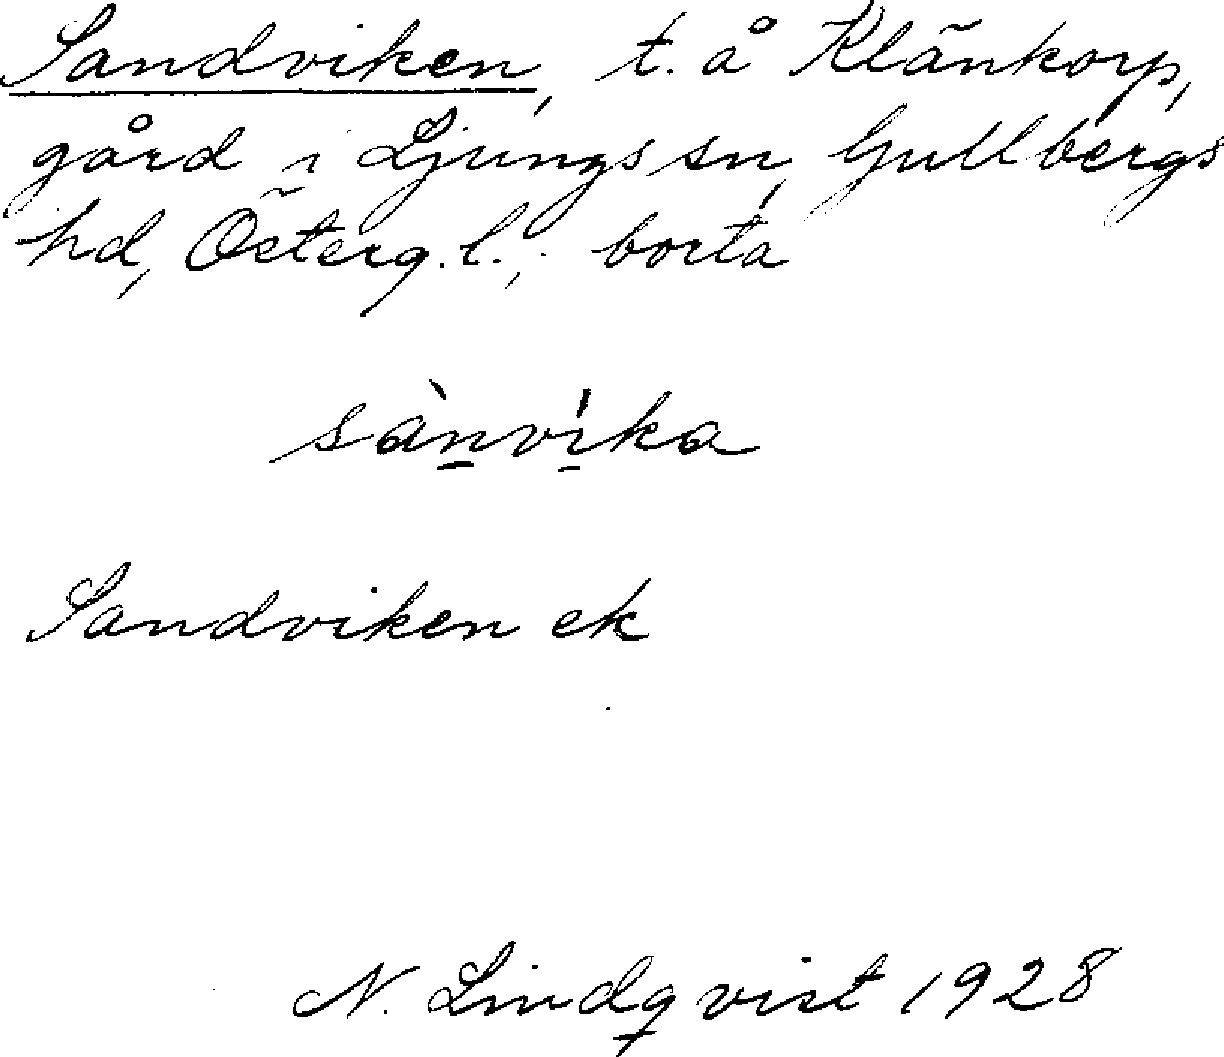 Sandviken, t. å Klänkorp,
gård i Ljungs sn, Gullbergs
hd, Österg. l.; borta
sànvíka
Sandviken ek
N. Lindqvist 1928